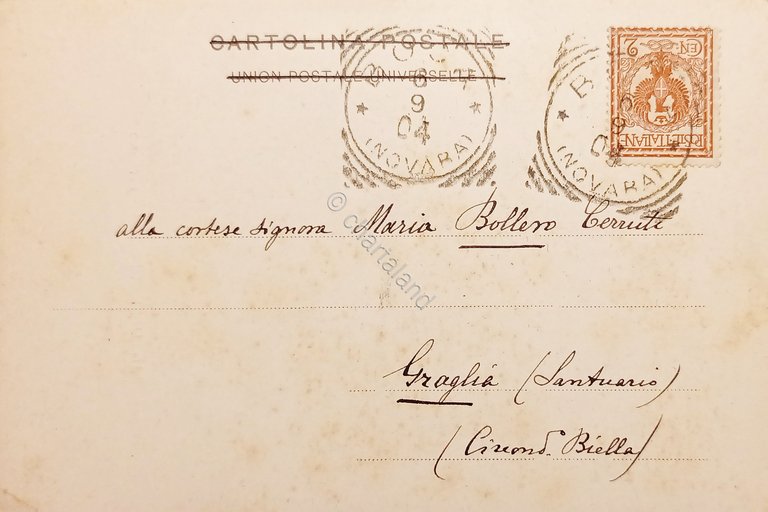 CARTOLINA POSTALE
UNION POSTALE UNIVERSELLE
6
9
04
(NOVARA)
(NOVARA)
EN. 2
POSTE ITALIANE
alla cortese signora Maria Bollero Cerruti
© chartaland
Graglia (Santuario)
(Circond. Biella)